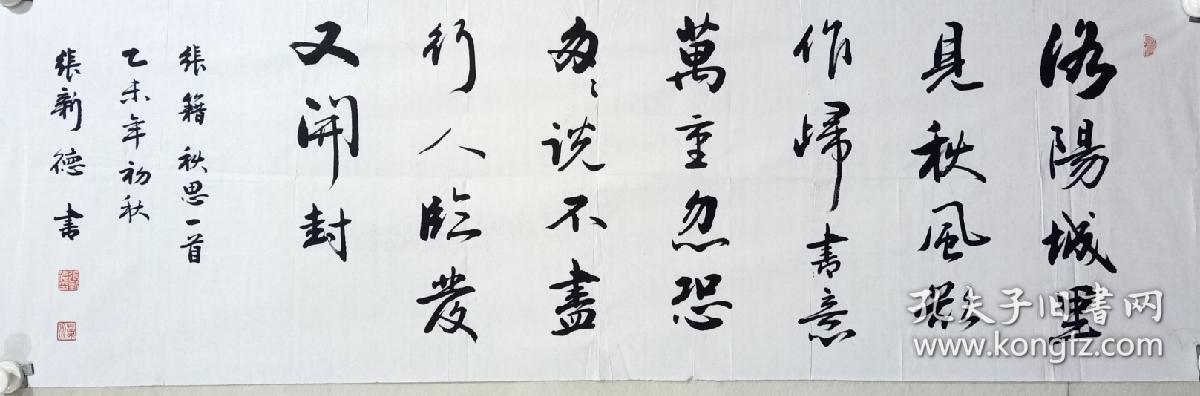 洛陽城里
見秋風欲
作歸書意
萬重忽恐
匆〻說不盡
行人臨發
又開封
張籍秋思一首
乙未年初秋
張新德書
孔夫子旧書网
www.kongfz.com